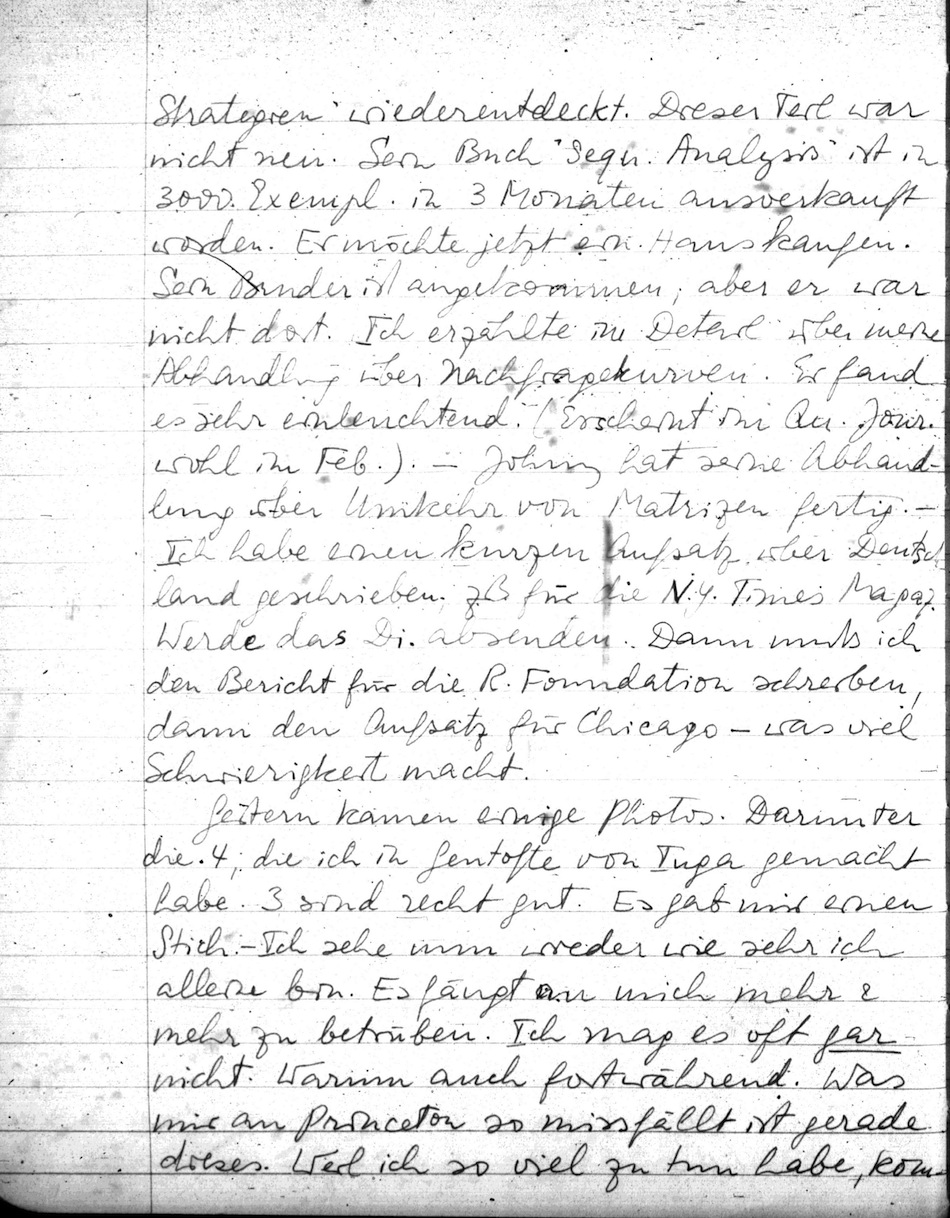 Strategien" wiederentdeckt. Dieser Teil war
nicht neu. Sein Buch "Sequ. Analysis" ist in
3000 Exempl. in 3 Monaten ausverkauft
worden. Er möchte jetzt ein Haus kaufen.
Sein Bruder ist angekommen, aber er war
nicht dort. Ich erzählte im Detail über meine
Abhandlung über Nachfragekurven. Er fand
es sehr einleuchtend. (Erscheint im Qu. Jour.
wohl im Feb.). – Johnny hat seine Abhand-
lung über Umkehr von Matrizen fertig. –
Ich habe einen kurzen Aufsatz über Deutsch
land geschrieben, zB für die N.Y. Times Magaz.
Werde das Di. absenden. Dann muß ich
den Bericht für die R. Foundation schreiben,
dann den Aufsatz für Chicago – was viel
Schwierigkeit macht.
Gestern kamen einige Photos. Darunter
die 4, die ich in Gentofte von Inga gemacht
habe. 3 sind recht gut. Es gab mir einen
Stich. – Ich sehe nun wieder wie sehr ich
alleine bin. Es fängt an mich mehr &
mehr zu betrüben. Ich mag es oft gar
nicht. Warum auch fortwährend. Was
mir an Princeton so missfällt ist gerade
dieses. Weil ich so viel zu tun habe, kom-